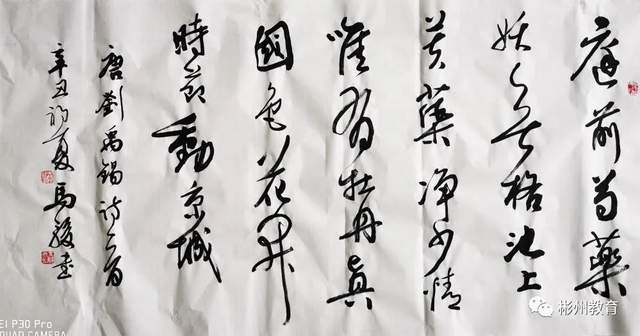 庭前芍藥
妖无格池上
芙蕖淨少情
唯有牡丹真
國色花開
時節動京城
唐劉禹錫詩一首
辛丑初夏馬駿書
EI P30 Pro
QUAD CAMERA
彬州教育